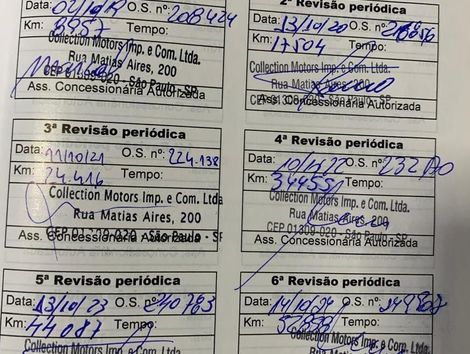 Data: 02/10/19 O.S. nº: 208424
Km: 8957 Tempo:
Collection Motors Imp. e Com. Ltda.
Rua Matias Aires, 200
CEP 01309-020 - São Paulo - SP
Ass. Concessionária Autorizada
2ª Revisão periódica
Data: 13/10/20 O.S. nº:
Km: 17504 Tempo:
Collection Motors Imp. e Com. Ltda.
Rua Matias Aires, 200
CEP 01309-020 - São Paulo - SP
Ass. Concessionária Autorizada
3ª Revisão periódica
Data: 11/10/21 O.S. nº: 224.138
Km: 24.416 Tempo:
Collection Motors Imp. e Com. Ltda.
Rua Matias Aires, 200
CEP 01309-020 - São Paulo - SP
Ass. Concessionária Autorizada
4ª Revisão periódica
Data: O.S. nº:
Km: Tempo:
Collection Motors Imp. e Com. Ltda.
Rua Matias Aires, 200
CEP 01309-020 - São Paulo - SP
Ass. Concessionária Autorizada
5ª Revisão periódica
Data: 13/10/23 O.S. nº: 240783
Km: 44087 Tempo:
Collection Motors Imp. e Com. Ltda.
6ª Revisão periódica
Data: 14/10/24 O.S. nº:
Km: Tempo:
Collection Motors Imp. e Com. Ltda.